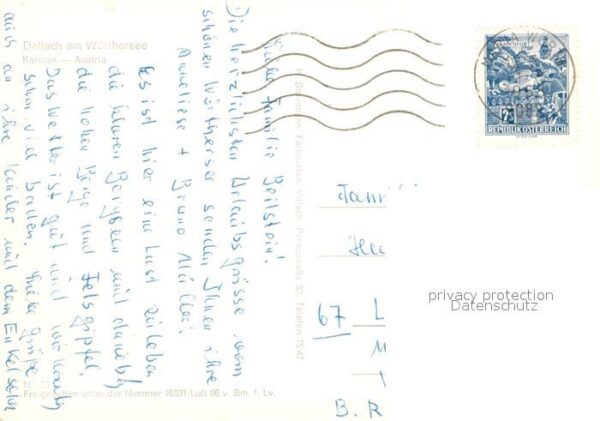 Dellach am Wörthersee
Kärnten — Austria
Liebe Familie Beilstein!
Die herzlichsten Urlaubsgrüsse vom
schönen Wörthersee senden Ihnen ihre
Anneliese + Bruno Müller!
Es ist hier eine Lust zu leben
die Berg und
die hohen Berge und Felsgipfel.
Das Wetter ist gut und wir können
schon viel baden. Viele Grüße
auch an ihre Kinder und dem Enkelsohn
Freigegeben unter der Nummer 16331/Luft 66 v. Bm. f. Lv.
Villach, Peraustraße 30, Telefon 75 47
KLAGENFURT
REPUBLIK ÖSTERREICH
Fami
67 L
M
B. R
privacy protection
Datenschutz